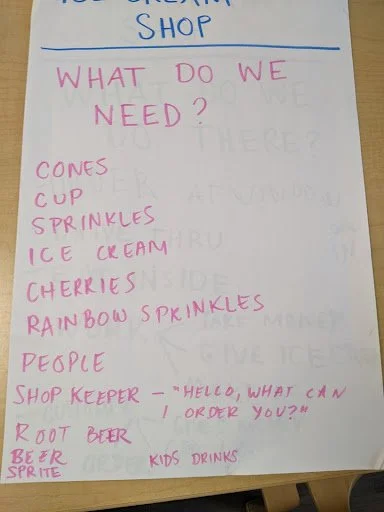 ICE CREAM
SHOP
WHAT DO WE
NEED?
CONES
CUP
SPRINKLES
ICE CREAM
CHERRIES
RAINBOW SPRINKLES
PEOPLE
SHOP KEEPER – "HELLO, WHAT CAN
I ORDER YOU?"
ROOT BEER
BEER
SPRITE
KIDS DRINKS